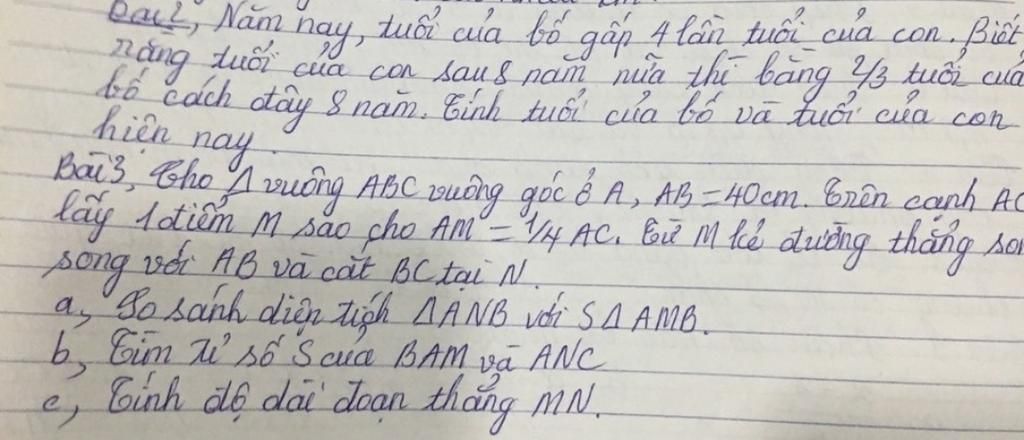 Bài 2, Năm nay, tuổi của bố gấp 4 lần tuổi của con. Biết
rằng tuổi của con sau 8 năm nữa thì bằng 2/3 tuổi của
bố cách đây 8 năm. Tính tuổi của bố và tuổi của con
hiện nay.
Bài 3, Cho Δ vuông ABC vuông góc ở A, AB = 40cm. Trên cạnh AC
lấy 1 điểm M sao cho AM = 1/4 AC. Từ M kẻ đường thẳng son
song với AB và cắt BC tại N.
a, So sánh diện tích ΔANB với SΔAMB.
b, Tìm tỉ số S của BAM và ANC
c, Tính độ dài đoạn thẳng MN.